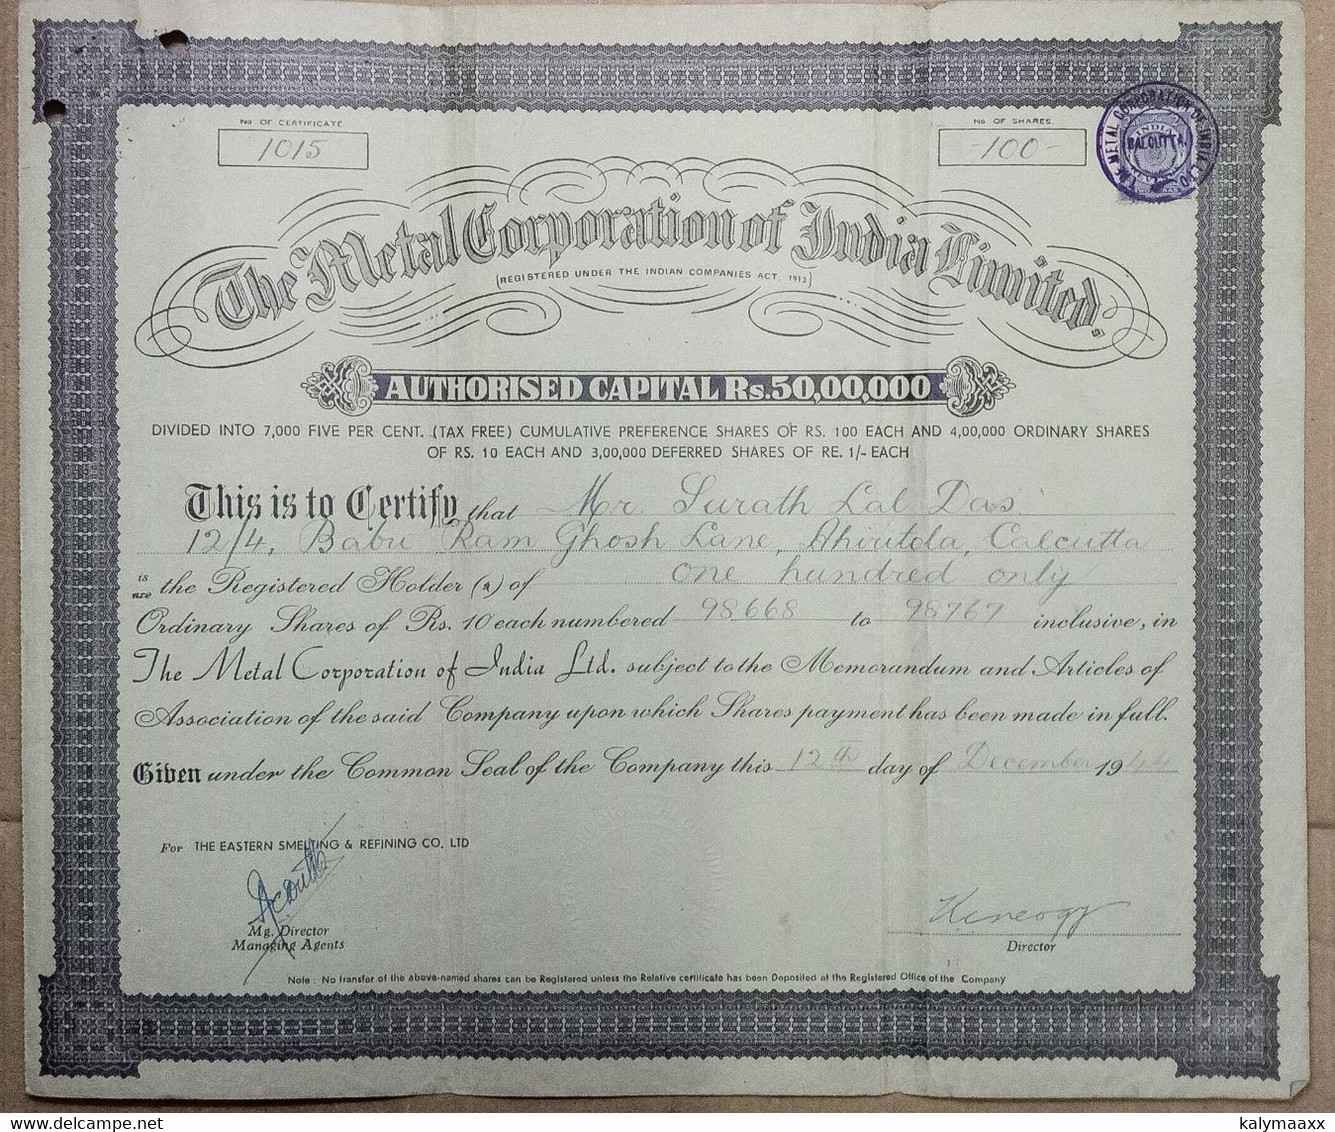 No OF CERTIFICATE
1015
No OF SHARES
-100-
THE METAL CORPORATION OF INDIA LTD
INDIA
CALCUTTA
The Metal Corporation of India Limited.
(REGISTERED UNDER THE INDIAN COMPANIES ACT, 1913)
AUTHORISED CAPITAL Rs.50,00,000
DIVIDED INTO 7,000 FIVE PER CENT. (TAX FREE) CUMULATIVE PREFERENCE SHARES OF RS. 100 EACH AND 4,00,000 ORDINARY SHARES
OF RS. 10 EACH AND 3,00,000 DEFERRED SHARES OF RE. 1/- EACH
This is to Certify that Mr. Surath Lal Das
12/4, Babu Ram Ghosh Lane, Ahiritola, Calcutta
is are the Registered Holder (s) of one hundred only
Ordinary Shares of Rs. 10 each numbered 98668 to 98767 inclusive, in
The Metal Corporation of India Ltd. subject to the Memorandum and Articles of
Association of the said Company upon which Shares payment has been made in full.
Given under the Common Seal of the Company this 12th day of December 1944
For THE EASTERN SMELTING & REFINING CO. LTD
Mg. Director
Managing Agents
Director
Note : No transfer of the above-named shares can be Registered unless the Relative certificate has been Deposited at the Registered Office of the Company
kalymaaxx